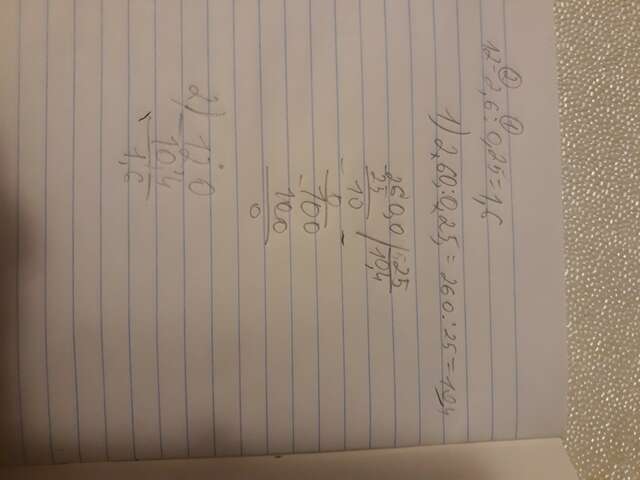 ② ①
12-2,6:0,25=1,6
1) 2,60:0,25=260:25=10,4
260,0 | 25
25 | 10,4
10
0
100
100
0
2) 12,0
10,4
1,6